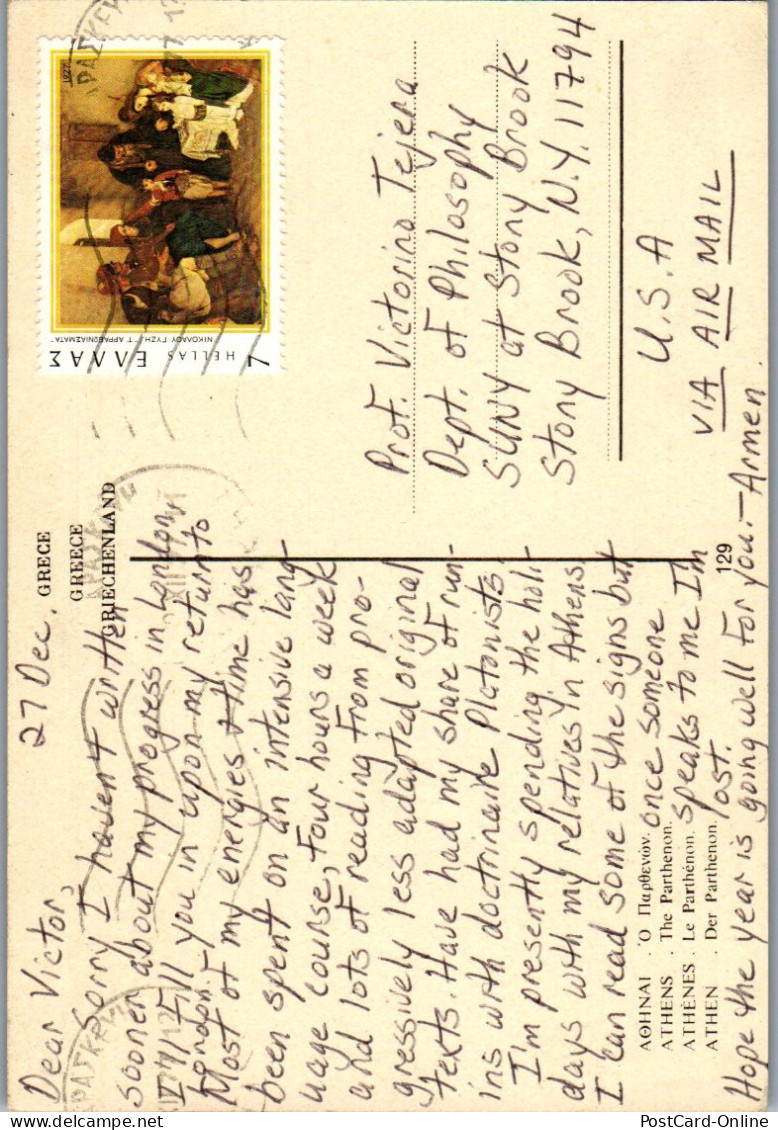 27 Dec.
Dear Victor,
Sorry I haven't written
sooner about my progress in London,
I'll fill you in upon my return to
London.
Most of my energies & time has
been spent on an intensive lang-
uage course, four hours a week
and lots of reading from pro-
gressively less adapted original
texts. Have had my share of run-
ins with doctrinaire Platonists.
I'm presently spending the holi-
days with my relatives in Athens.
I can read some of the signs but
once someone
speaks to me I'm
lost.
Hope the year is going well for you. – Armen.
ΑΘΗΝΑΙ . Ὁ Παρθενών.
ATHENS . The Parthenon.
ATHÈNES . Le Parthénon.
ATHEN . Der Parthenon.
GRECE
GREECE
GRIECHENLAND
129
1977
ΝΙΚΟΛΑΟΥ ΓΥΖΗ: "Τ' ΑΡΡΑΒΩΝΙΑΣΜΑΤΑ"
HELLAS
7 ΕΛΛΑΣ
Prof. Victorino Tejera
Dept. of Philosophy
SUNY at Stony Brook
Stony Brook, N.Y. 11794
U.S.A
VIA AIR MAIL
PostCard-Online